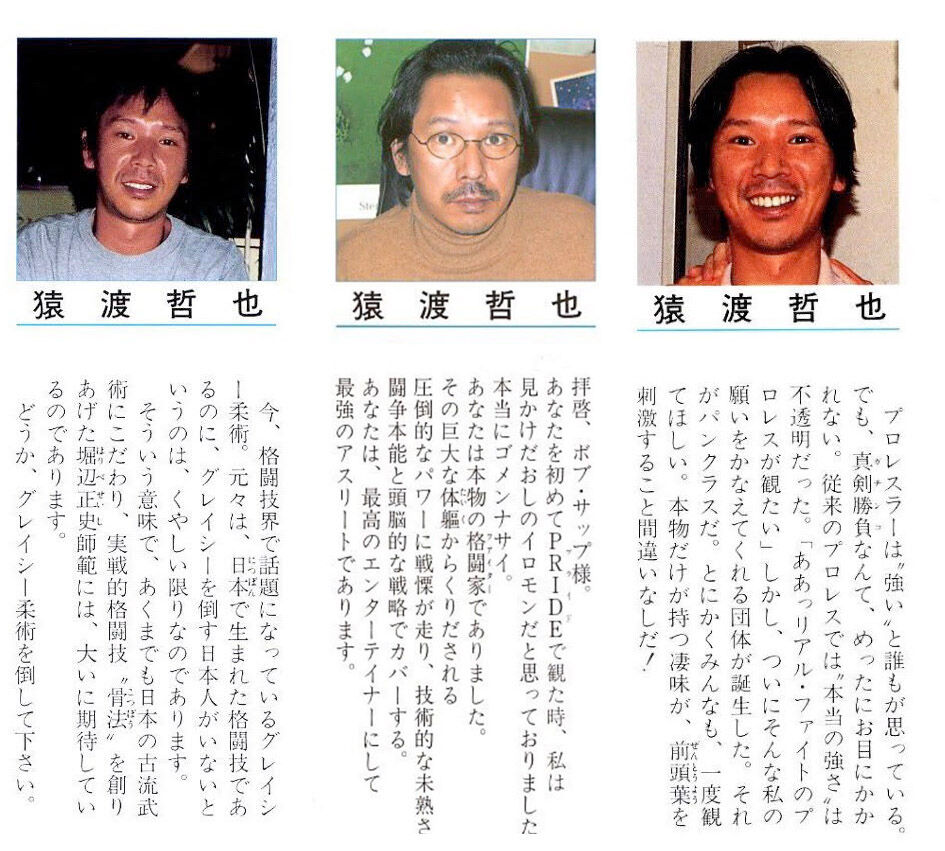 猿渡哲也
プロレスラーは〝強い〟と誰もが思っている。
ガチンコ
でも、真剣勝負なんて、めったにお目にかか
れない。従来のプロレスでは〝本当の強さ〟は
不透明だった。「ああっリアル・ファイトのプ
ロレスが観たい」しかし、ついにそんな私の
願いをかなえてくれる団体が誕生した。それ
がパンクラスだ。とにかくみんなも、一度観
ぜんとうよう
てほしい。本物だけが持つ凄味が、前頭葉を
刺激すること間違いなしだ!
猿渡哲也
拝啓、ボブ・サップ様。
プライド
あなたを初めてPRIDEで観た時、私は
見かけだおしのイロモンだと思っておりました
本当にゴメンナサイ。
ファイター
あなたは本物の格闘家でありました。
たいく
その巨大な体軀からくりだされる
圧倒的なパワーに戦慄が走り、技術的な未熟さ
闘争本能と頭脳的な戦略でカバーする。
あなたは、最高のエンターテイナーにして
最強のアスリートであります。
猿渡哲也
今、格闘技界で話題になっているグレイシ
にっぽん
ー柔術。元々は、日本で生まれた格闘技であ
るのに、グレイシーを倒す日本人がいないと
いうのは、くやしい限りなのであります。
そういう意味で、あくまでも日本の古流武
こっぽう
術にこだわり、実戦的格闘技〝骨法〟を創り
ほりべせいし
あげた堀辺正史師範には、大いに期待してい
るのであります。
どうか、グレイシー柔術を倒して下さい。